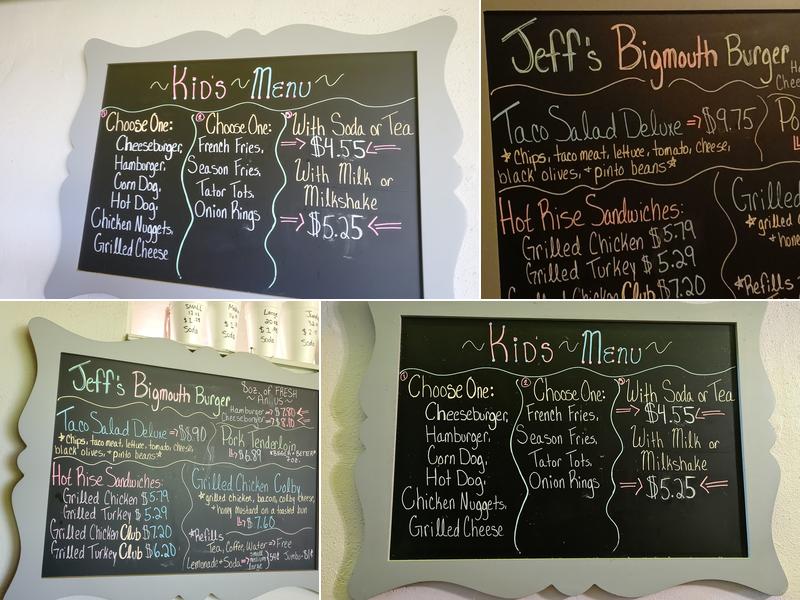 ~Kid's~Menu~
① Choose One:
Cheeseburger,
Hamburger,
Corn Dog,
Hot Dog,
Chicken Nuggets,
Grilled Cheese
② Choose One:
French Fries,
Season Fries,
Tator Tots,
Onion Rings
③ With Soda or Tea
$4.55
With Milk or
Milkshake
$5.25
Jeff's Bigmouth Burger
Taco Salad Deluxe $9.75
*chips, taco meat, lettuce, tomato, cheese,
black olives, + pinto beans*
Hot Rise Sandwiches:
Grilled Chicken $5.79
Grilled Turkey $5.29
Grilled Chicken Club $7.20
Grilled
*grilled
+ hone
*Refills
SMALL
Soda
Soda
Large
Soda
Soda
Jeff's Bigmouth Burger
8oz. of FRESH
~ Angus ~
Hamburger $7.80
Cheeseburger $8.10
Taco Salad Deluxe $8.90
*chips, taco meat, lettuce, tomato, cheese,
black olives, + pinto beans*
Pork Tenderloin
$6.89 *BIGGER + BETTER*
7oz.
Hot Rise Sandwiches:
Grilled Chicken $5.79
Grilled Turkey $5.29
Grilled Chicken Club $7.20
Grilled Turkey Club $6.20
Grilled Chicken Colby
*grilled chicken, bacon, colby cheese,
+ honey mustard on a toasted bun
$7.60
*Refills
Tea, Coffee, Water Free
Lemonade + Soda small medium large 50¢ Jumbo
~Kid's~Menu~
① Choose One:
Cheeseburger,
Hamburger,
Corn Dog,
Hot Dog,
Chicken Nuggets,
Grilled Cheese
② Choose One:
French Fries,
Season Fries,
Tator Tots,
Onion Rings
③ With Soda or Tea
$4.55
With Milk or
Milkshake
$5.25